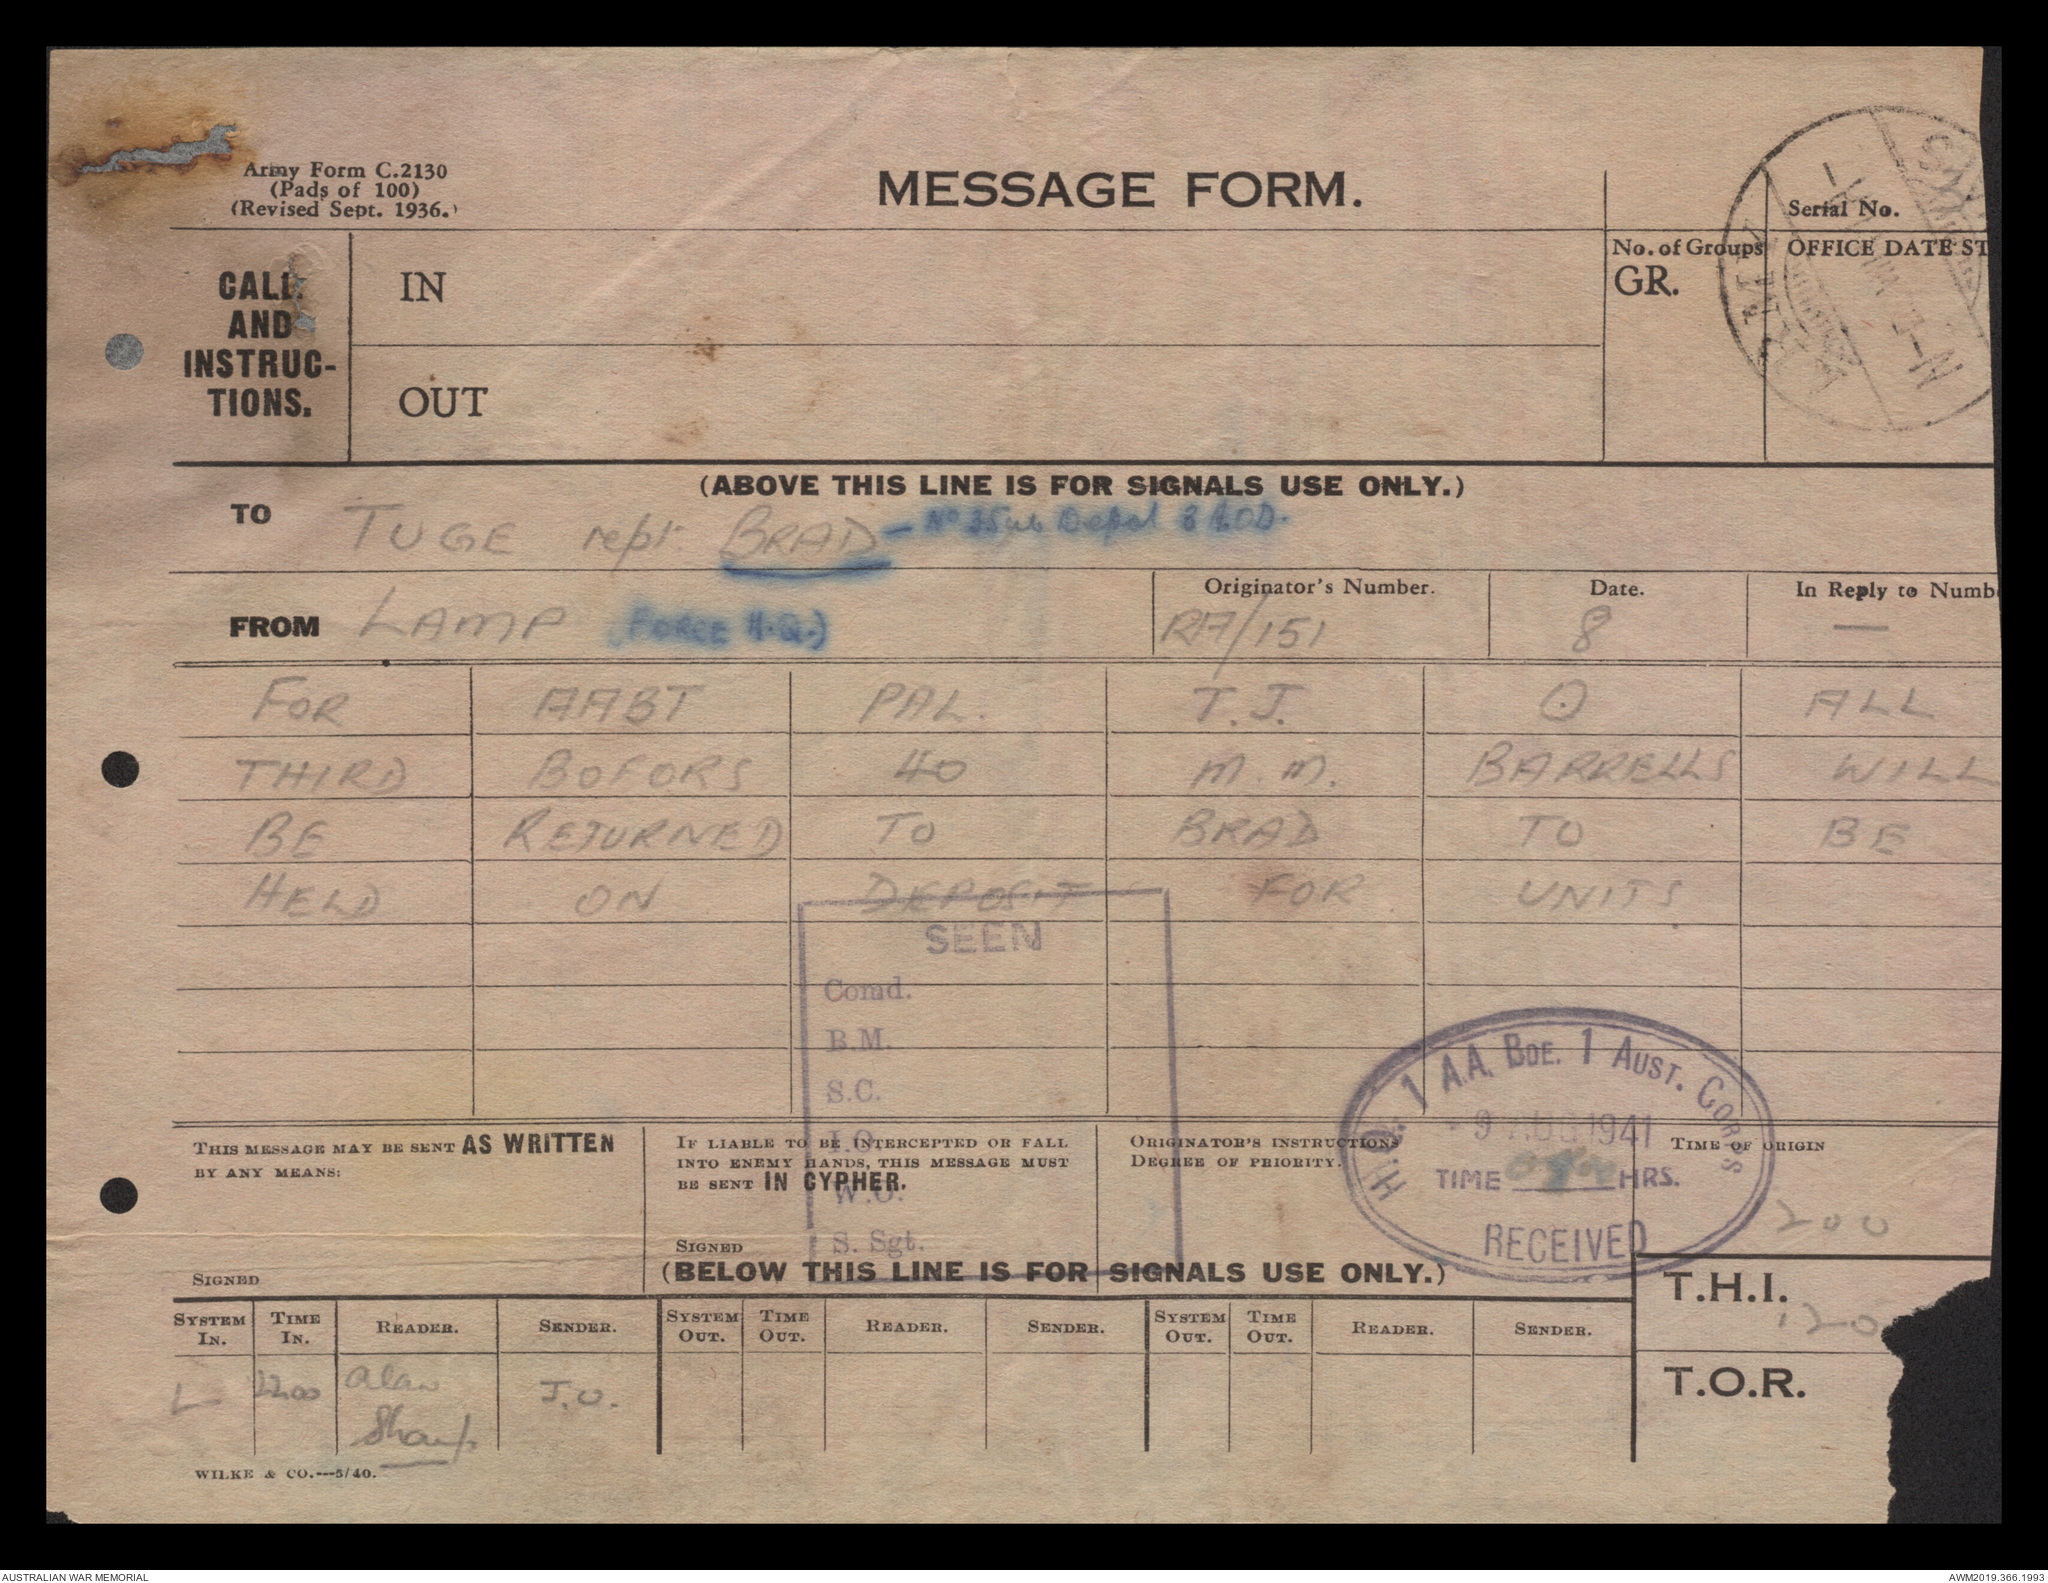 Army Form C.2130
(Pads of 100)
(Revised Sept. 1936.)
MESSAGE FORM.
Serial No.
CALL AND INSTRUC-TIONS.
IN
OUT
No. of Groups
GR.
OFFICE DATE ST
(ABOVE THIS LINE IS FOR SIGNALS USE ONLY.)
TO TUGE rept BRAD – No 3 Sub Depot 8 AOD.
FROM LAMP (FORCE H.Q.)
Originator's Number.
RA/151
Date.
8
In Reply to Numb
—
FOR AABT PAL. T.J. O ALL
THIRD BOFORS 40 M.M. BARRELLS WILL
BE RETURNED TO BRAD TO BE
HELD ON DEPOSIT FOR UNITS
SEEN
Comd.
B.M.
S.C.
I.O.
W.O.
S. Sgt.
H.Q. 1 A.A. BDE. 1 AUST. CORPS
-9 AUG 1941
TIME HRS.
RECEIVED
THIS MESSAGE MAY BE SENT AS WRITTEN
BY ANY MEANS:
SIGNED
IF LIABLE TO BE INTERCEPTED OR FALL
INTO ENEMY HANDS, THIS MESSAGE MUST
BE SENT IN CYPHER.
SIGNED
ORIGINATOR'S INSTRUCTIONS
DEGREE OF PRIORITY.
TIME OF ORIGIN
200
(BELOW THIS LINE IS FOR SIGNALS USE ONLY.)
T.H.I.
T.O.R.
SYSTEM IN. TIME IN. READER. SENDER. SYSTEM OUT. TIME OUT. READER. SENDER. SYSTEM OUT. TIME OUT. READER. SENDER.
L 2200 Alan J.U.
Sharp
WILKE & CO.---5/40.
AUSTRALIAN WAR MEMORIAL
AWM2019.366.1993